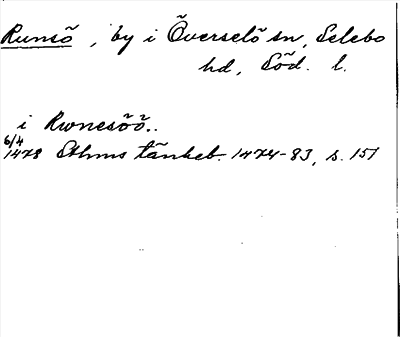 Runsö, by i Överselö sn, Selebo
hd, Söd. l.
i Rwnesöö..
6/4
1478 Sthms tänkeb. 1474-83, s. 151